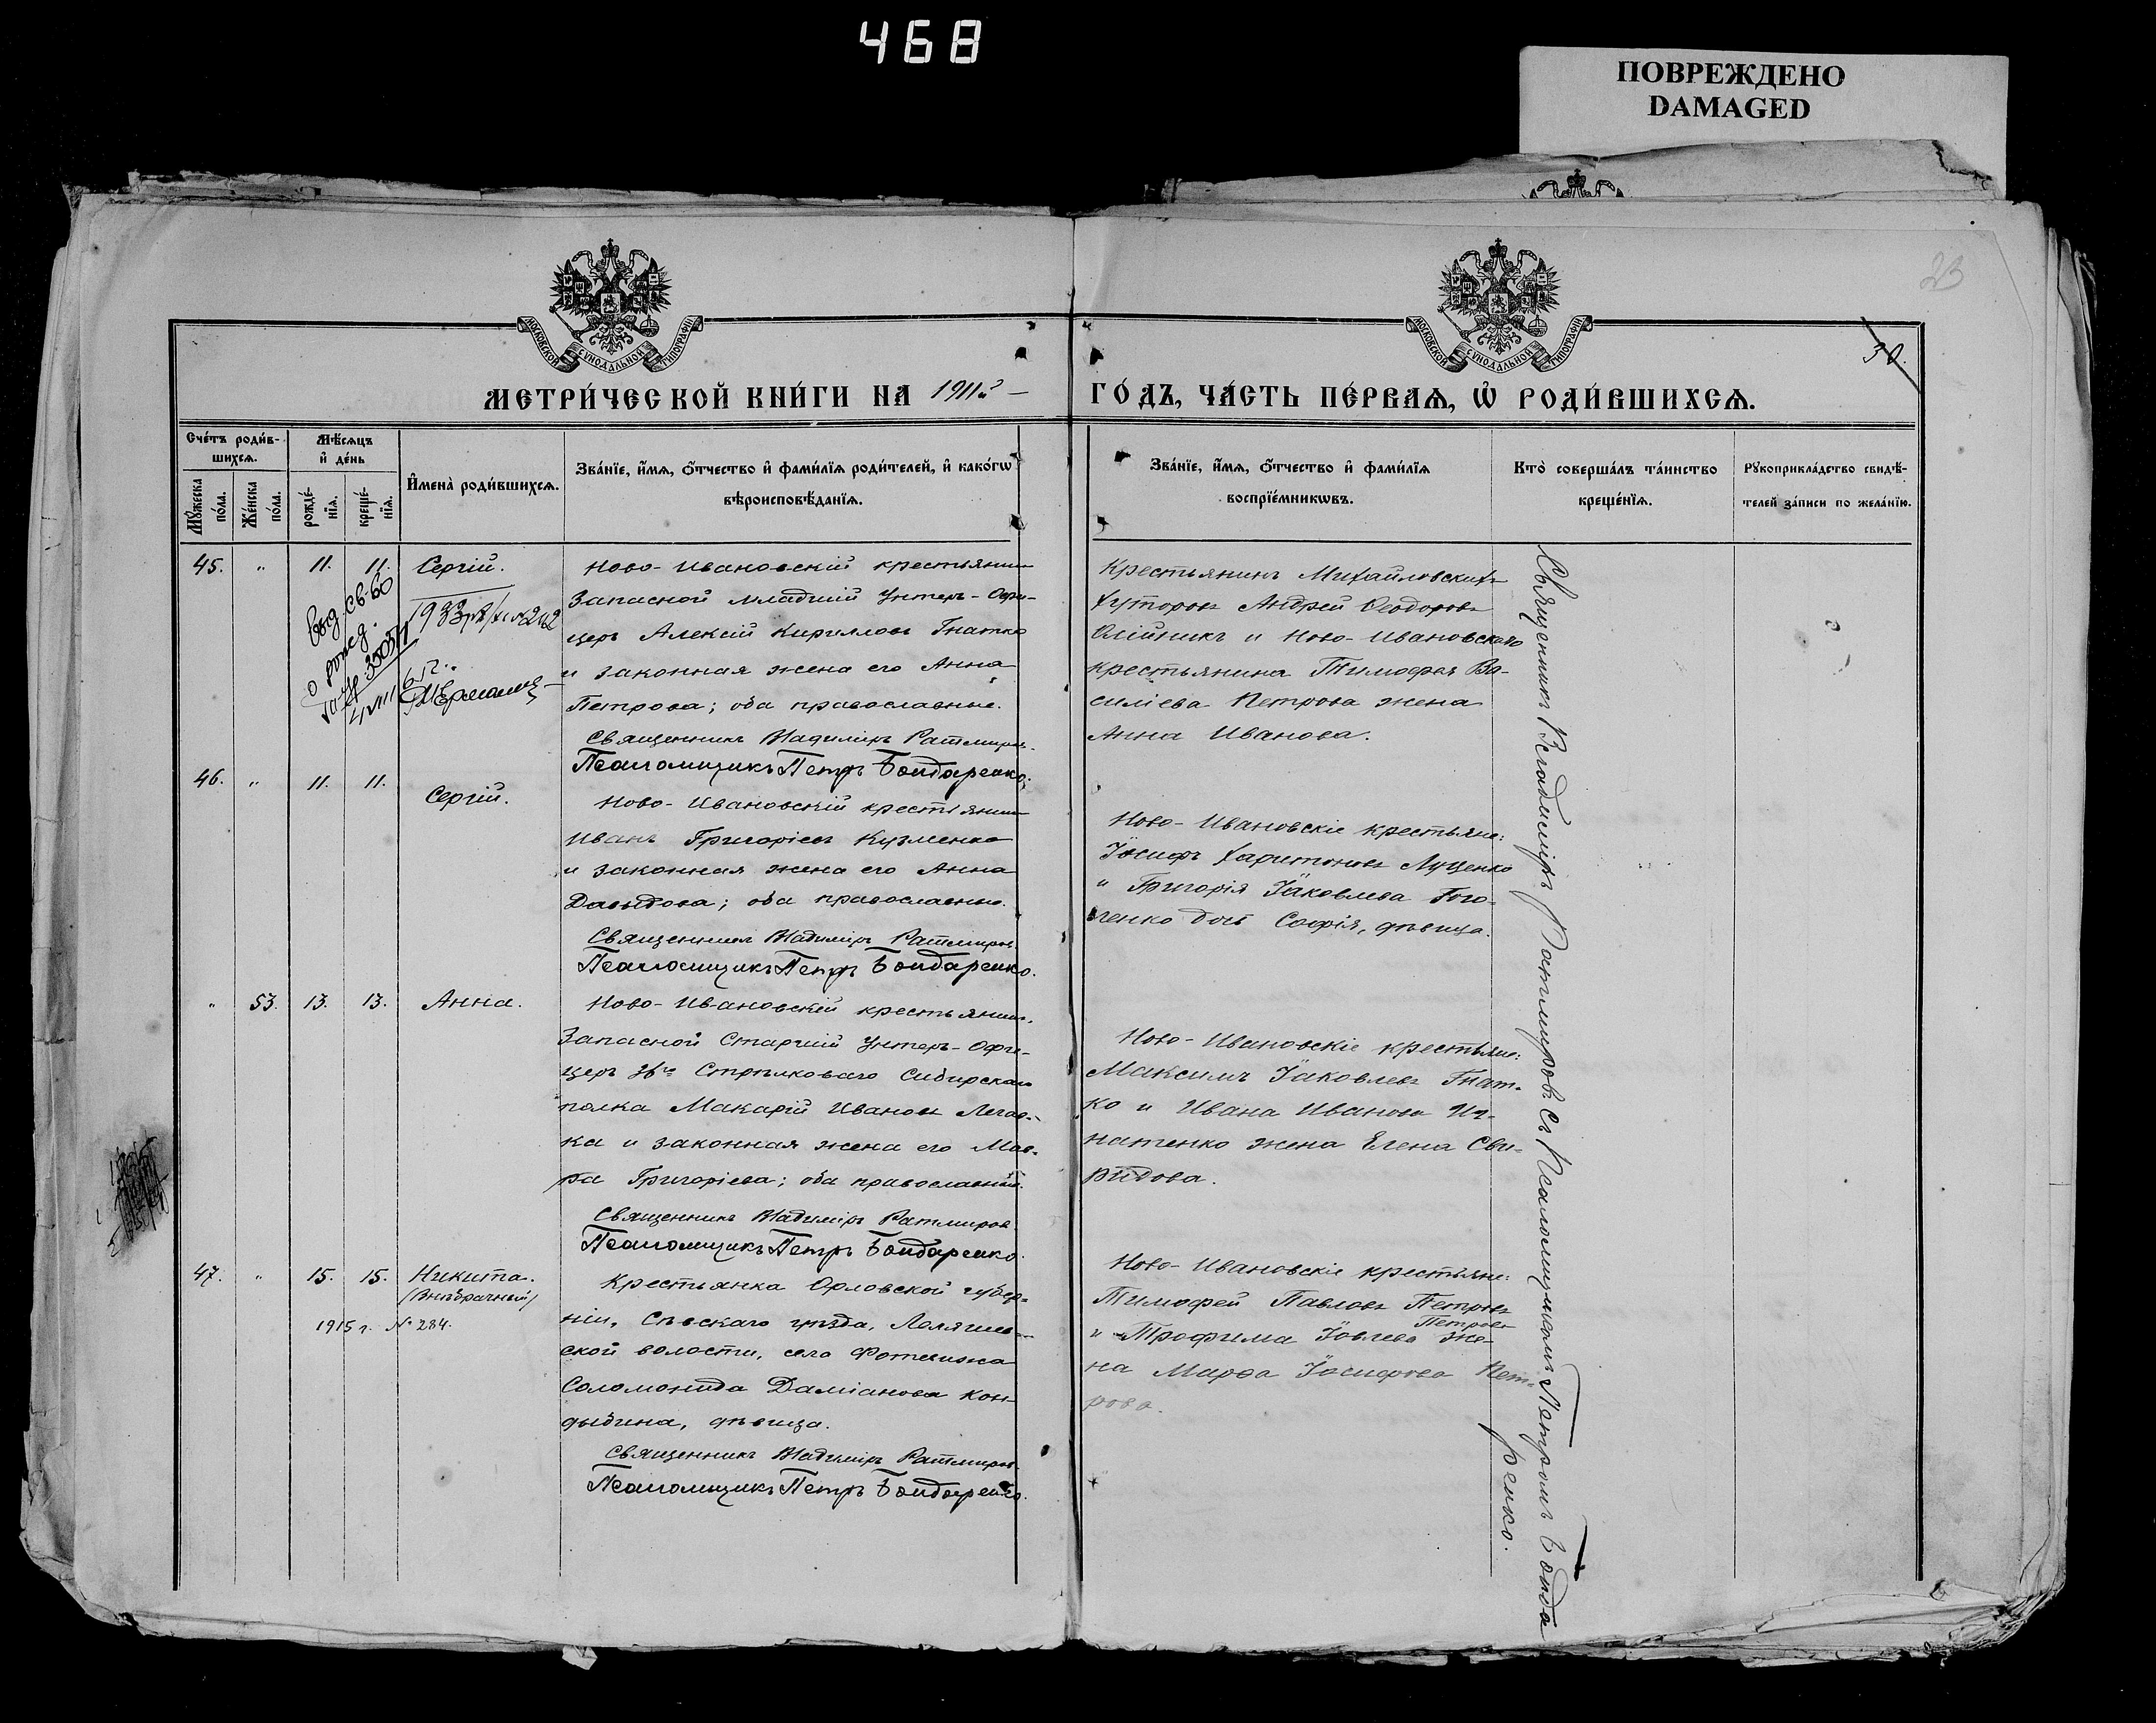 468
ПОВРЕЖДЕНО
DAMAGED
МОСКОВСКОЙ СѴНОДАЛЬНОЙ ТИПОГРАФІИ
МОСКОВСКОЙ СѴНОДАЛЬНОЙ ТИПОГРАФІИ
23
30.
МЕТРИ́ЧЕСКОЙ КНИ́ГИ НА 1911й —
ГО́ДЪ, ЧА́СТЬ ПЕ́РВАЯ, Ѡ҆ РОДИ́ВШИХСЯ.
Сче́тъ роди́в-
шихся.
Мѣ́сяцъ
и҆ де́нь
Мꙋ́жеска по́ла.
Же́нска по́ла.
рожде́-
нїя.
креще́-
нїя.
И҆мена̀ роди́вшихся.
Зва́нїе, и҆́мя, ѻ҆́тчество и҆ фами́лїя роди́телей, и҆ како́гѡ
вѣроисповѣ́данїя.
Зва́нїе, и҆́мя, ѻ҆́тчество и҆ фами́лїя
воспрїе́мникѡвъ.
Кто̀ соверша́лъ та́инство
креще́нїя.
Рꙋкоприкла́дство свидѣ́-
телей за́писи по жела́нїю.
45. " 11. 11. Сергій.
Ново-Ивановскій крестьянин
Запасной младшій Унтеръ-Офи-
церъ Алексій Кириловъ Гнатко
и законная жена его Анна
Петрова; оба православные.
Священникъ Владиміръ Ратмиров.
Псаломщикъ Петръ Бондаренко.
Выд. св-во
о рожд.
Крестьянинъ Михайловскихъ
хуторовъ Андрей Ѳеодоровъ
Олійникъ и Ново-Ивановскаго
крестьянина Тимоѳея Ва-
силіева Петрова жена
Анна Иванова.
46. " 11. 11. Сергій.
Ново-Ивановскій крестьянин
Иванъ Григоріевъ Кузменко
и законная жена его Анна
Давыдова; оба православные.
Священникъ Владиміръ Ратмиров.
Псаломщикъ Петръ Бондаренко.
Ново-Ивановскіе крестьяне:
Іосифъ Харитоновъ Луценко
и Григорія Іаковлева Гого-
ленко дочь Софія, дѣвица.
" 53. 13. 13. Анна.
Ново-Ивановскій крестьянин.
Запасной Старшій Унтеръ-Офи-
церъ Стрѣлковаго Сибирскаго
полка Макарій Ивановъ
ка и законная жена его Мав-
ра Григоріева; оба православные.
Священникъ Владиміръ Ратмиров.
Псаломщикъ Петръ Бондаренко.
Ново-Ивановскіе крестьяне:
Максимъ Іаковлевъ Гнат-
ко и Ивана Иванова Иг-
натенко жена Елена Сви-
ридова.
47. " 15. 15. Никита.
(Внѣбрачный)
1915 г. № 284.
Крестьянка Орловской губер-
ніи, Сѣвскаго уѣзда,
ской волости, села
Соломонида Даміанова Кон-
дыбина, дѣвица.
Священникъ Владиміръ Ратмиров.
Псаломщикъ Петръ Бондаренко.
Ново-Ивановскіе крестьяне:
Тимофей Павловъ Петровъ
Петрова
и Трофима Іовлева же-
на Марѳа Іосифова Пет-
рова.
Священникъ Владиміръ Ратмировъ съ Псаломщикомъ Петромъ Бонда
ренко.